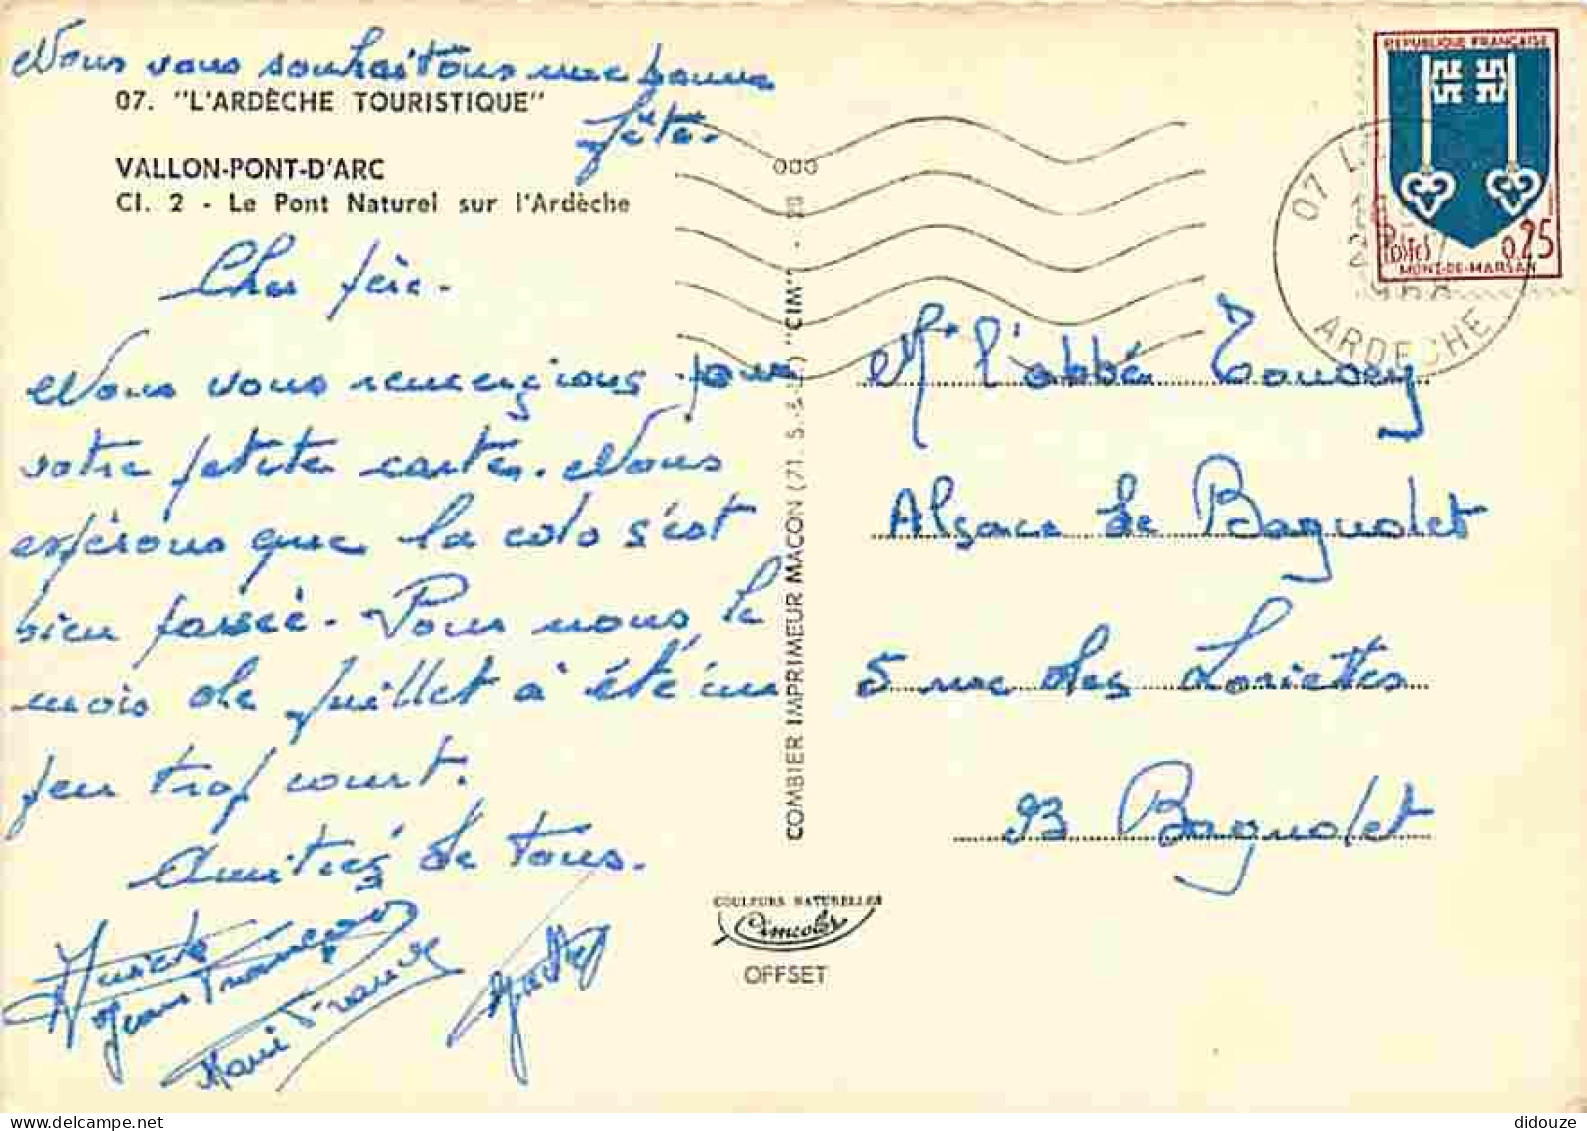 Nous vous souhaitons une bonne
fête.
07. "L'ARDÈCHE TOURISTIQUE"
VALLON-PONT-D'ARC
Cl. 2 - Le Pont Naturel sur l'Ardèche
Cher père.
Nous vous remercions pour
votre petite carte. Nous
espérons que la colo s'est
bien passée. Pour nous le
mois de Juillet à été un
peu trop court.
Amitiés de tous.
Jean François
Marie France
COMBIER IMPRIMEUR MACON (71. S.-&-L.) "CIM"
COULEURS NATURELLES
Cimcolor
OFFSET
REPUBLIQUE FRANÇAISE
POSTES 0,25
MONT-DE-MARSAN
07 L
ARDECHE
Mr l'abbé
Alsace de Bagnolet
5 rue des Loriettes
93 Bagnolet
didouze